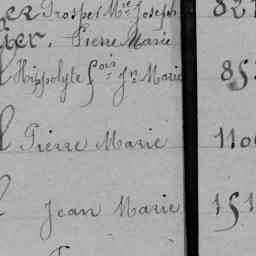 Prosper Mie Joseph 821
ier, Pierre Marie
Hippolyte Fois Jn Marie 853
Pierre Marie 110
Jean Marie 151